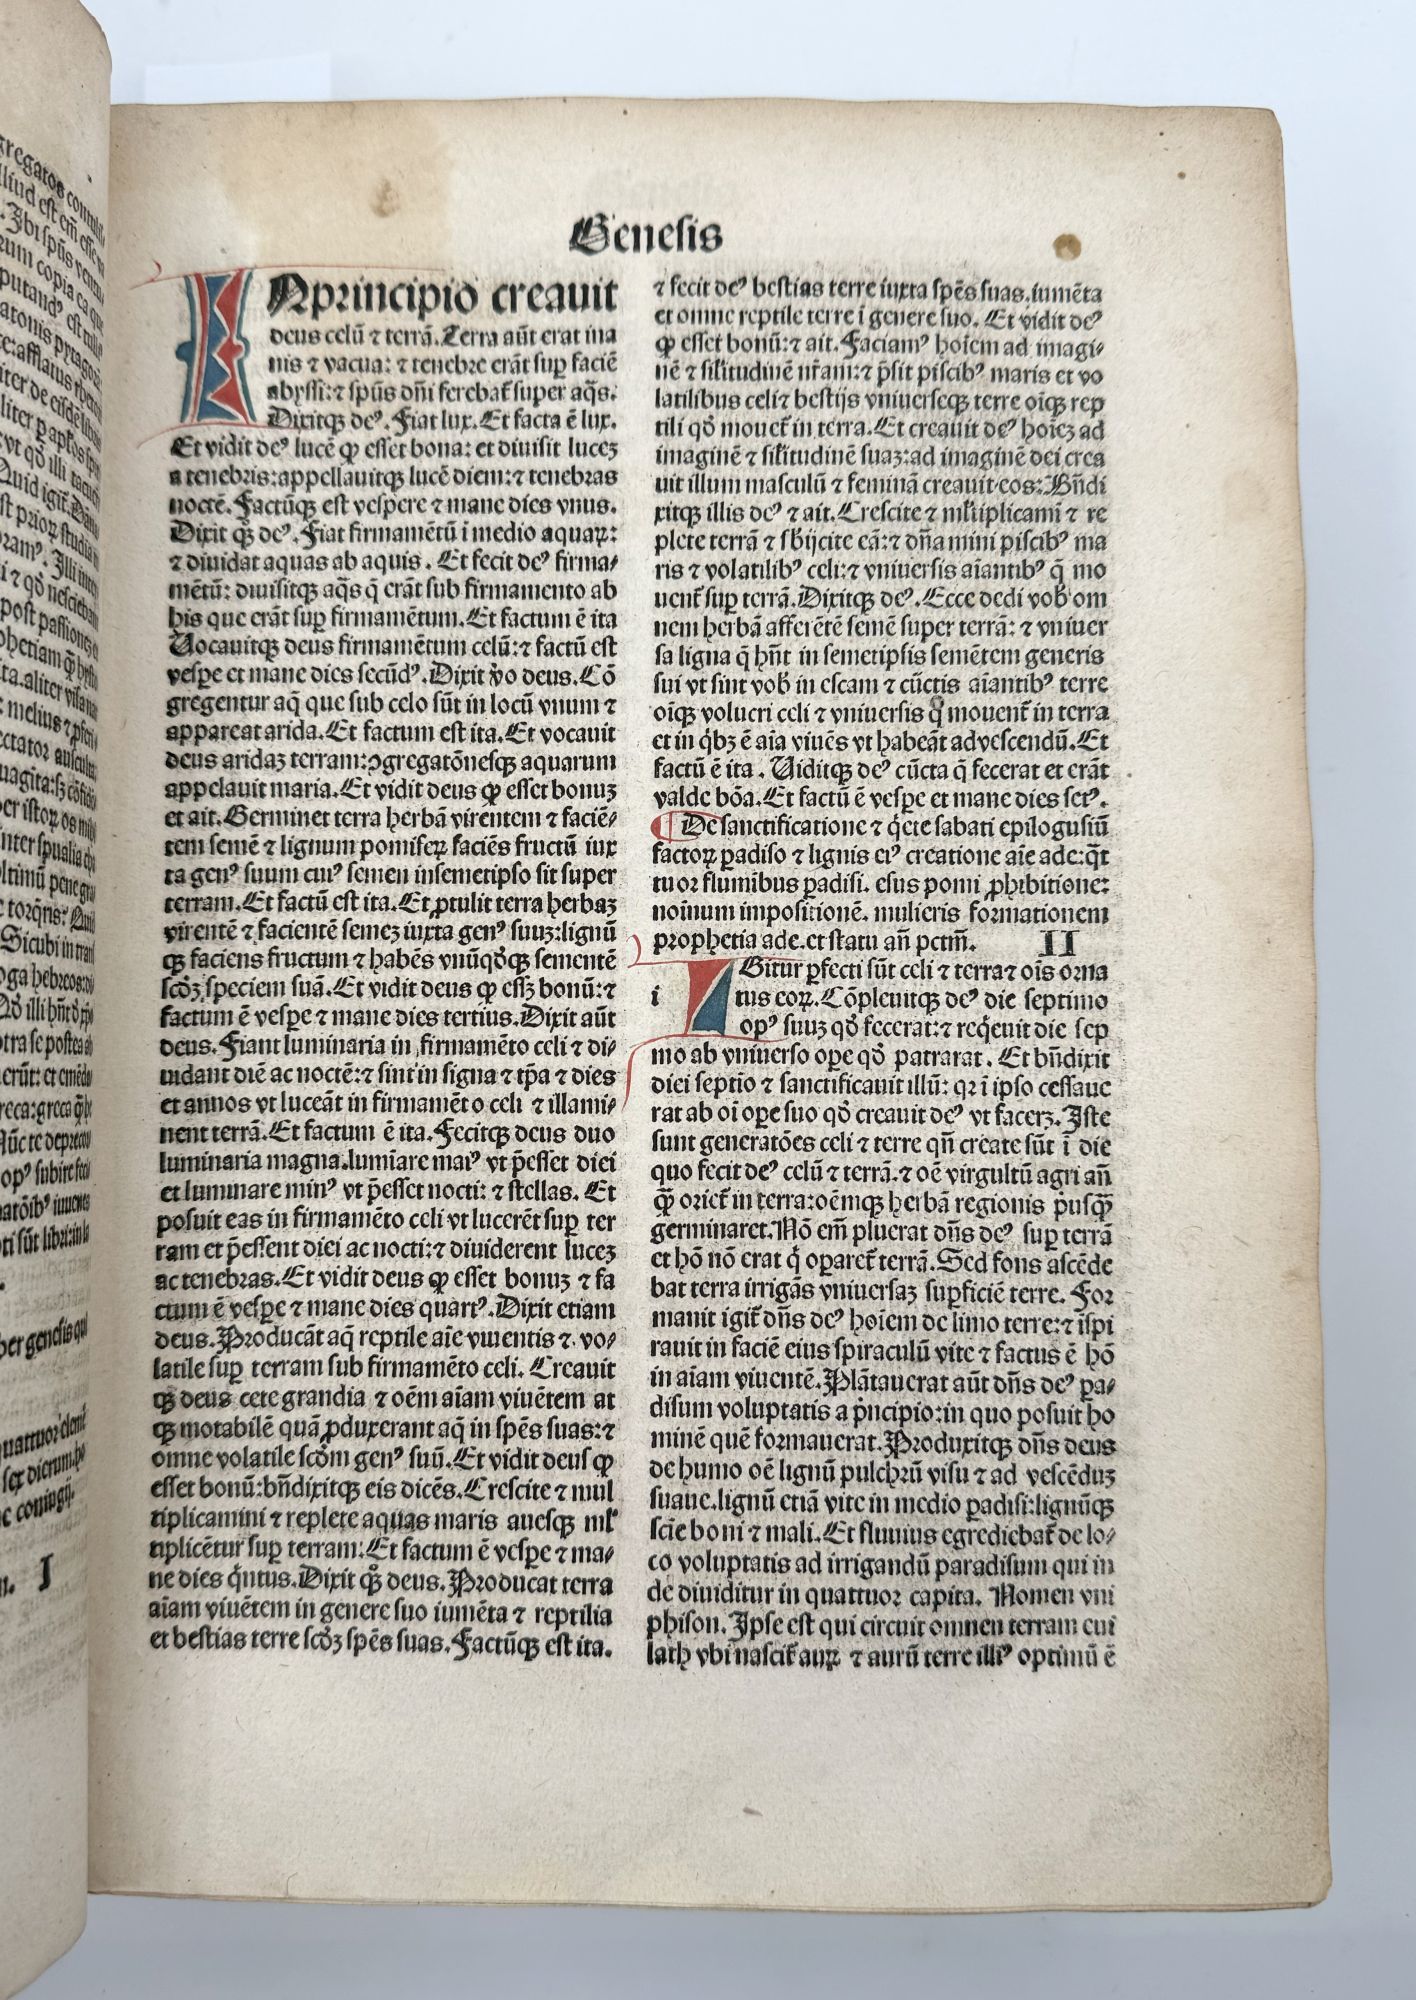 Genesis
INprincipio creauit
deus celū ⁊ terrā. Terra aūt erat ina
nis ⁊ vacua: ⁊ tenebre erāt suꝑ faciē
abyssi: ⁊ spūs dn̄i ferebat᷑ super aq̄s.
Dixitqꝫ de⁹. Fiat lux. Et facta ē lux.
Et vidit de⁹ lucē ꝙ esset bona: et diuisit lucez
a tenebris: appellauitqꝫ lucē diem: ⁊ tenebras
noctē. Factūqꝫ est vespere ⁊ mane dies vnus.
Dixit qꝫ̊ de⁹. Fiat firmamētū ī medio aquaꝝ:
⁊ diuidat aquas ab aquis. Et fecit de⁹ firma⸗
mētū: diuisitqꝫ aq̄s q̄ erāt sub firmamento ab
his que erāt suꝑ firmamētum. Et factum ē ita
Uocauitqꝫ deus firmamētum celū: ⁊ factū est
vesꝑe et mane dies secūd⁹. Dixit v̊o deus. Cō
gregentur aq̄ que sub celo sūt in locū vnum ⁊
appareat arida. Et factum est ita. Et vocauit
deus aridaz terram: ꝯgregatōnesqꝫ aquarum
appelauit maria. Et vidit deus ꝙ esset bonuz
et ait. Germinet terra herbā virentem ⁊ faciē⸗
tem semē ⁊ lignum pomiseꝝ faciēs fructū iux
ta gen⁹ suum cui⁹ semen insemetipso sit super
terram. Et factū est ita. Et ꝓtulit terra herbaz
virentē ⁊ facientē semez iuxta gen⁹ suuz: lignū
qꝫ faciens fructum ⁊ habēs vnūqd̊qꝫ sementē
scd̊z speciem suā. Et vidit deus ꝙ essz bonū: ⁊
factum ē vesꝑe ⁊ mane dies tertius. Dixit aūt
deus. Fiant luminaria in firmamēto celi ⁊ di⸗
uidant diē ac noctē: ⁊ sint in signa ⁊ tp̄a ⁊ dies
et annos vt luceāt in firmamēto celi ⁊ illami⸗
nent terrā. Et factum ē ita. Fecitqꝫ deus duo
luminaria magna. lumīare mai⁹ vt p̄esset diei
et luminare min⁹ vt p̄esset nocti: ⁊ stellas. Et
posuit eas in firmamēto celi vt lucerēt suꝑ ter
ram et p̄essent diei ac nocti: ⁊ diuiderent lucez
ac tenebras. Et vidit deus ꝙ esset bonuz ⁊ fa
ctum ē vesꝑe ⁊ mane dies quart⁹. Dixit etiam
deus. Producāt aq̄ reptile aīe viuentis ⁊ vo⸗
latile suꝑ terram sub firmamēto celi. Creauit
qꝫ deus cete grandia ⁊ oēm aīam viuētem at
qꝫ motabilē quā ꝓduxerant aq̄ in spēs suas: ⁊
omne volatile scd̊m gen⁹ suū. Et vidit deus ꝙ
esset bonū: bn̄dixitqꝫ eis dicēs. Crescite ⁊ mul
tiplicamini ⁊ replete aquas maris auesqꝫ ml̕
tiplicētur suꝑ terram: Et factum ē vesꝑe ⁊ ma⸗
ne dies q̊ntus. Dixit qꝫ̊ deus. Producat terra
aīam viuētem in genere suo iumēta ⁊ reptilia
et bestias terre scd̊z spēs suas. Factūqꝫ est ita.
⁊ fecit de⁹ bestias terre iuxta spēs suas. iumēta
et omne reptile terre ī genere suo. Et vidit de⁹
ꝙ esset bonū: ⁊ ait. Faciam⁹ hoīem ad imagi⸗
nē ⁊ sil̕itudinē nr̄am: ⁊ p̄sit piscib⁹ maris et vo
latilibus celi ⁊ bestijs vniuerseqꝫ terre oīqꝫ rep
tili qd̊ mouet᷑ in terra. Et creauit de⁹ hoīez ad
imaginē ⁊ sil̕itudinē suaz: ad imaginē dei crea
uit illum masculū ⁊ feminā creauit eos: Bn̄di
xitqꝫ illis de⁹ ⁊ ait. Crescite ⁊ ml̕tiplicamī ⁊ re
plete terrā ⁊ sb̕ijcite eā: ⁊ dn̄a mini piscib⁹ ma
ris ⁊ volatilib⁹ celi: ⁊ vniuersis aīantib⁹ q̄ mo
uent᷑ suꝑ terrā. Dixitqꝫ de⁹. Ecce dedi vob̕ om
nem herbā afferētē semē super terrā: ⁊ vniuer
sa ligna q̄ hn̄t in semetipsis semētem generis
sui vt sint vob̕ in escam ⁊ cūctis aīantib⁹ terre
oīqꝫ volucri celi ⁊ vniuersis q̄ mouent᷑ in terra
et in q̊bz ē aīa viuēs vt habeāt ad vescendū. Et
factū ē ita. Uiditqꝫ de⁹ cūcta q̄ fecerat et erāt
valde bōa. Et factū ē vesꝑe et mane dies sex⁹.
De sanctificatione ⁊ q̊ete sabati epilogusiū
factoꝝ ꝑadiso ⁊ lignis ei⁹ creatione aīe ade: q̄t
tuor flumībus ꝑadisi. esus pomi ꝓhibitione:
noīnum impositionē. mulieris formationem
prophetia ade. et statu an̄ pctm̄. II
IGitur ꝑfecti sūt celi ⁊ terra ⁊ oīs orna
i tus eoꝝ. Cōpleuitqꝫ de⁹ die septimo
op⁹ suuz qd̊ fecerat: ⁊ req̊euit die sep
mo ab vniuerso oꝑe qd̊ patrarat. Et bn̄dixit
diei septīo ⁊ sanctificauit illū: qꝛ ī ipso cessaue
rat ab oī oꝑe suo qd̊ creauit de⁹ vt facerz. Iste
sunt generatōes celi ⁊ terre qn̄ create sūt ī die
quo fecit de⁹ celū ⁊ terrā. ⁊ oē virgultū agri an̄
ꝙ̄ oriet᷑ in terra: oēmqꝫ herbā regionis p̊usꝙ̄
germinaret. Nō em̄ pluerat dn̄s de⁹ suꝑ terrā
et hō nō erat q̊ oꝑaret᷑ terrā. Sed fons ascēde
bat terra irrigās vniuersaz suꝑficiē terre. For
manit igit᷑ dn̄s de⁹ hoīem de limo terre: ⁊ īspi
rauit in faciē eius spiraculū vite ⁊ factus ē hō
in aīam viuentē. Plātauerat aūt dn̄s de⁹ ꝑa⸗
disum voluptatis a p̊ncipio: in quo posuit ho
minē quē formauerat. Produxitqꝫ dn̄s deus
de humo oē lignū pulchrū visu ⁊ ad vescēduz
suaue. lignū etiā vite in medio ꝑadisi: lignūqꝫ
sciē boni ⁊ mali. Et fluuius egrediebat᷑ de lo⸗
co voluptatis ad irrigandū paradisum qui in
de diuiditur in quattuor capita. Nomen vni
phison. Ipse est qui circuit omnen terram eui
lath vbi nascit᷑ auꝝ ⁊ aurū terre illi⁹ optimū ē